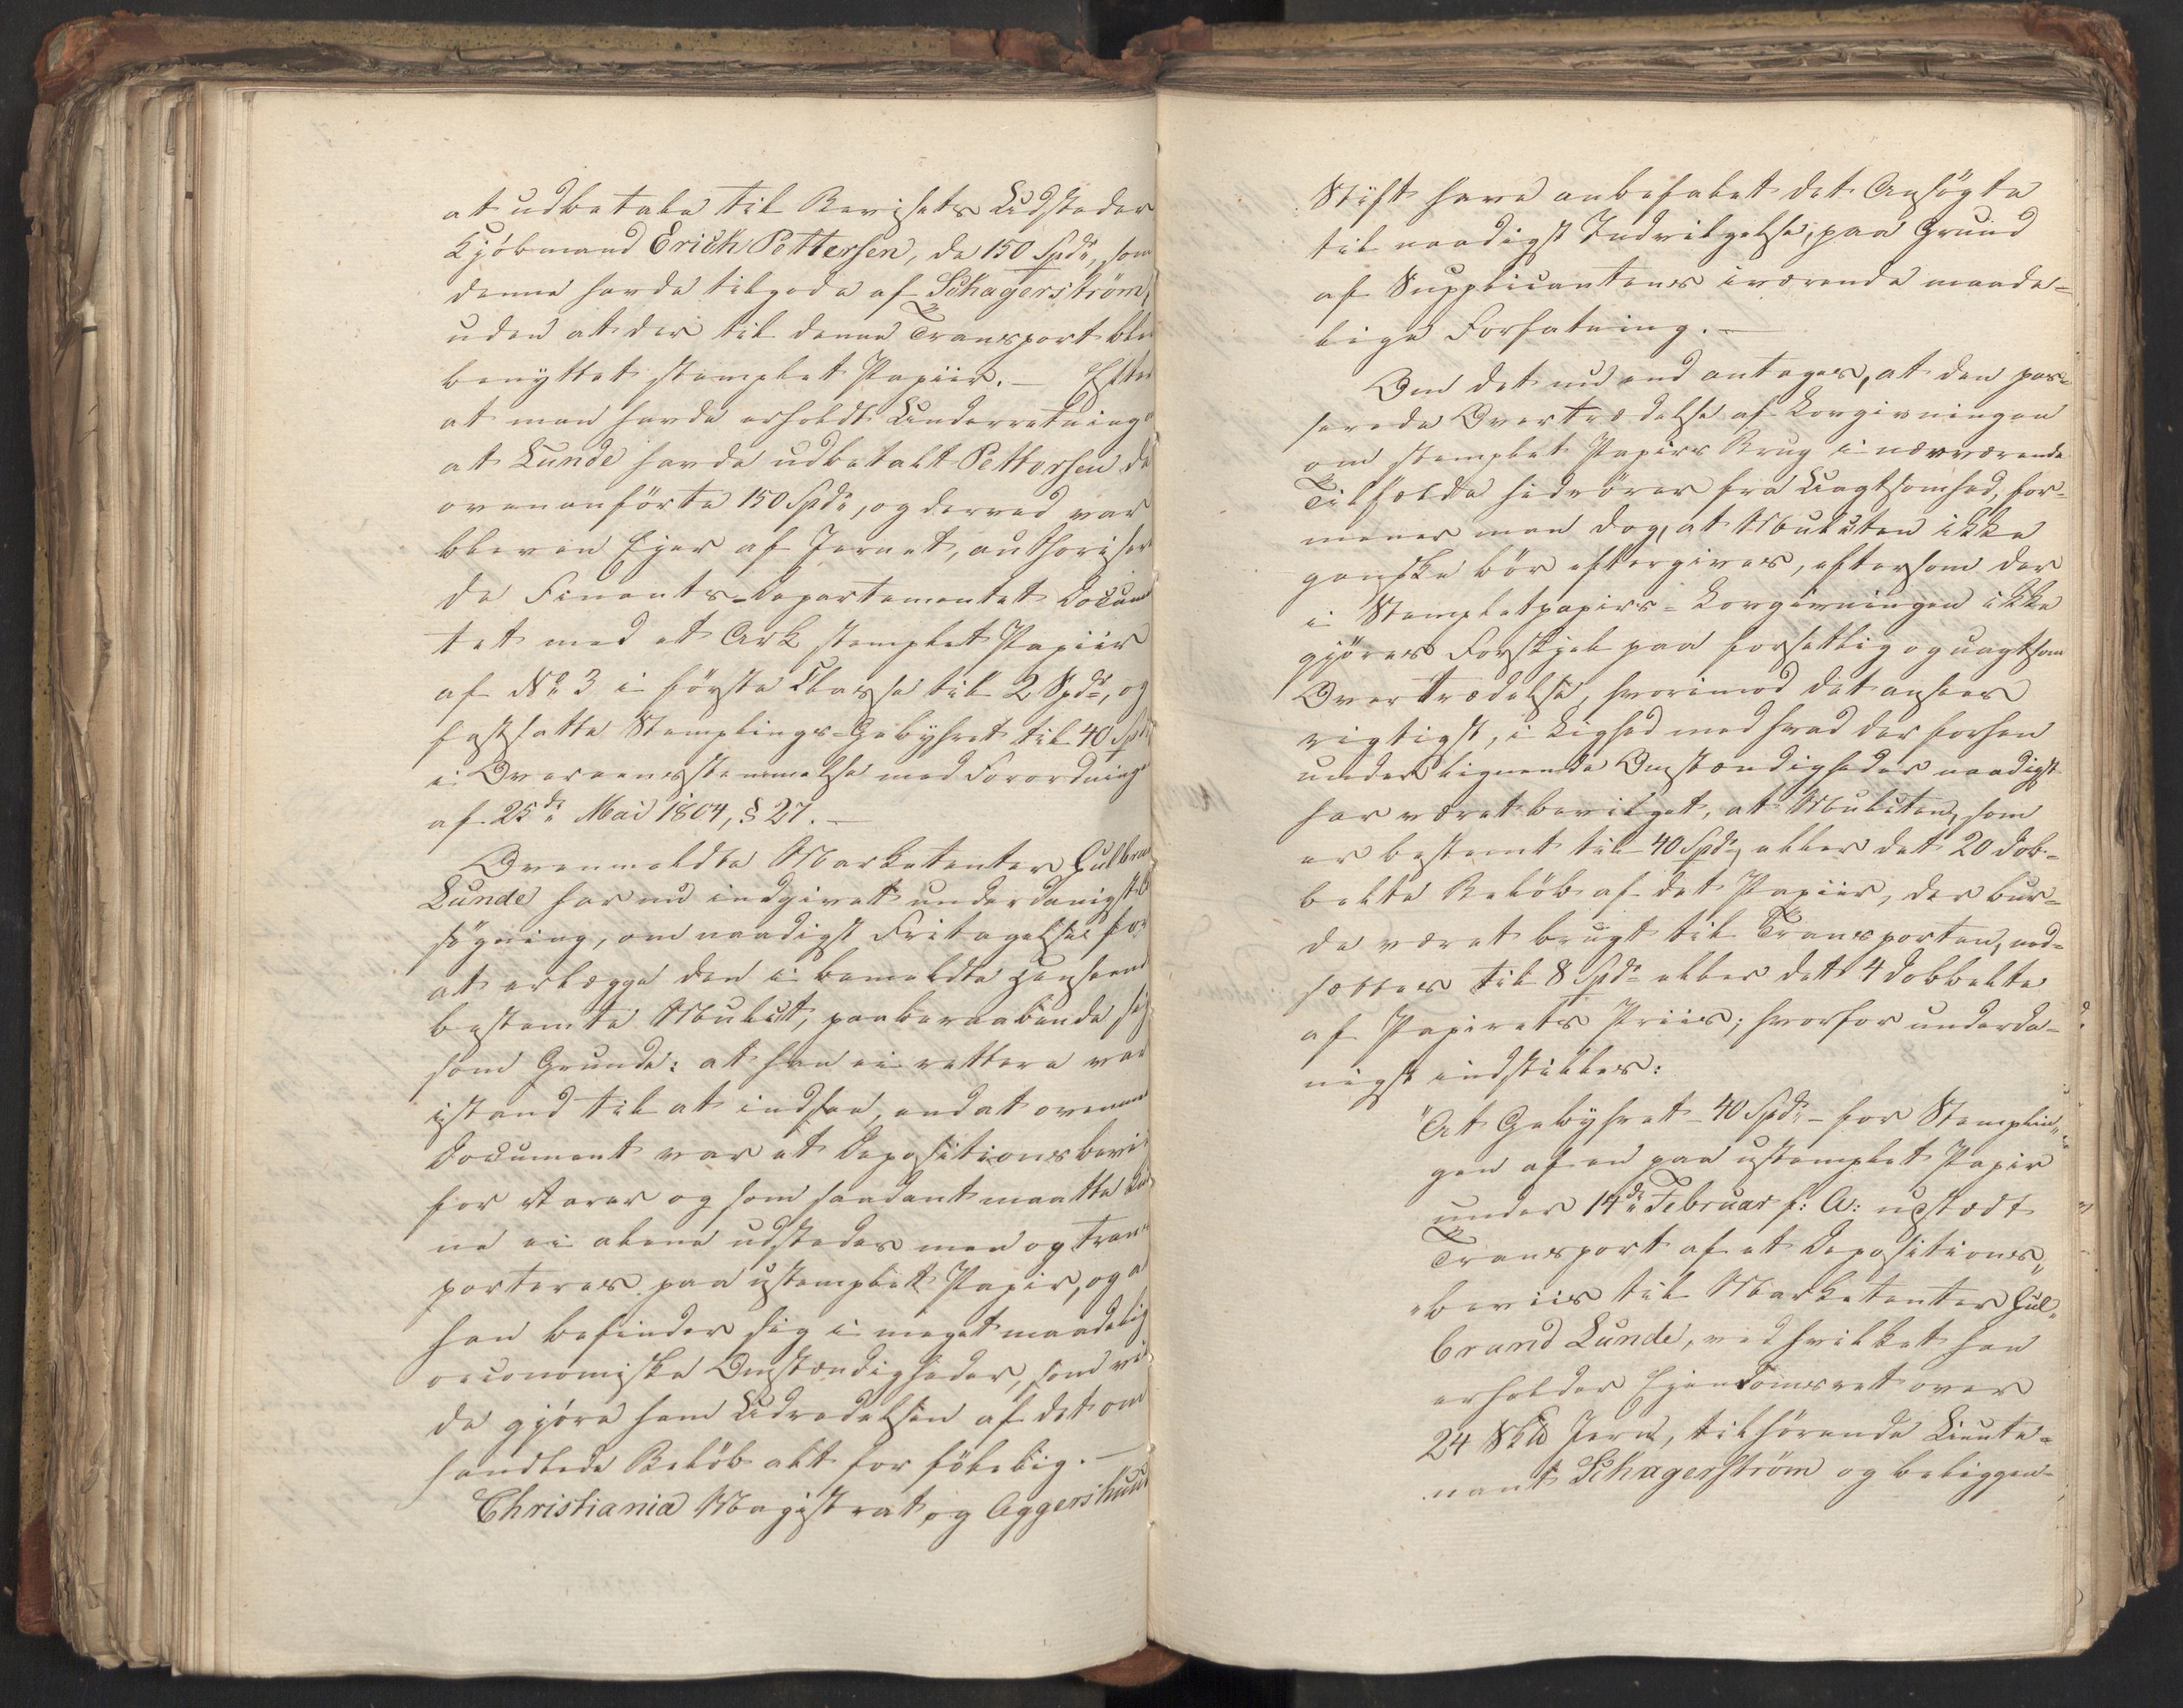 at udbetale til Bevisets Udsteder
Kjöbmand Erich Pettersen, de 150 Spdr, som
denne havde tilgode af Schagerström,
uden at der til denne Transport blev
benyttet stemplet Papiir. — Efter
at man havde erholdt Underretning
at Lunde havde udbetalt Pettersen de
ovenanförte 150 Spdr, og derved var
bleven Ejer af Jernet, authoriser
de Finants-Departementet Docum
tet med et Ark stemplet Papiir
af No 3 i förste Classe til 2 Spdr, og
fastsatte Stemplings-Gebyhret til 40 Spdr
i Overeensstemmelse med Forordning
af 25de Mai 1804, § 27. —
Ovenmeldte Marketenter Gulbrand
Lunde har nu indgivet underdanigst
søgning, om naadigst Fritagelse for
at erlægge den i bemeldte Henseende
bestemte Mulct, paaberaabende sig
som Grunde: at han ei rettere var
istand til at indsee, end at ovenmel
Document var et Depositionsbevis
for Varer og som saadant maatte den
ne ei alene udstedes men og trans
porteres paa ustemplet Papir, og at
han befinder sig i meget maadelig
oeconomiske Omstændigheder, som vil
de gjöre ham Udredelsen af det om
handlede Belöb alt for fölelig. —
Christiania Magistrat og Aggershuus
Stift have anbefalet det Ansögte
til naadigst Indvilgelse, paa Grund
af Supplicantens iværende maade-
lige Forfatning. —
Om det nu end antages, at den pas-
serede Overtrædelse af Lovgivningen
om stemplet Papirs Brug i nærværende
Tilfælde hidrörer fra Uagtsomhed, for-
mener man dog, at Mulcten ikke
ganske bör eftergives, eftersom der
i Stempletpapirs-Lovgivningen ikke
gjöres Forskjel paa forsætlig og uagtsom
Overtrædelse, hvorimod det ansees
rigtigst, i Lighed med hvad der forhen
under lignende Omstændigheder naadigst
har været bevilget, at Mulcten, som
er bestemt til 40 Spdr, eller det 20 dob-
belte Belöb af det Papiir, der bur-
de været brugt til Transporten, ned-
sættes til 8 Spdr eller det 4 dobbelte
af Papirets Priis; hvorfor underda-
nigst indstilles:
"At Gebyhret – 40 Spdr – for Stemplin"
gen af en paa ustemplet Papir
under 14de Februar f: A: udstædt
Transport af et Depositions"
"beviis til Marketenter Gul"
brand Lunde, ved hvilket han
erholder Ejendomsret over
24 Sk℔ Jern, tilhörende Lieute-
nant Schagerström og beliggen-